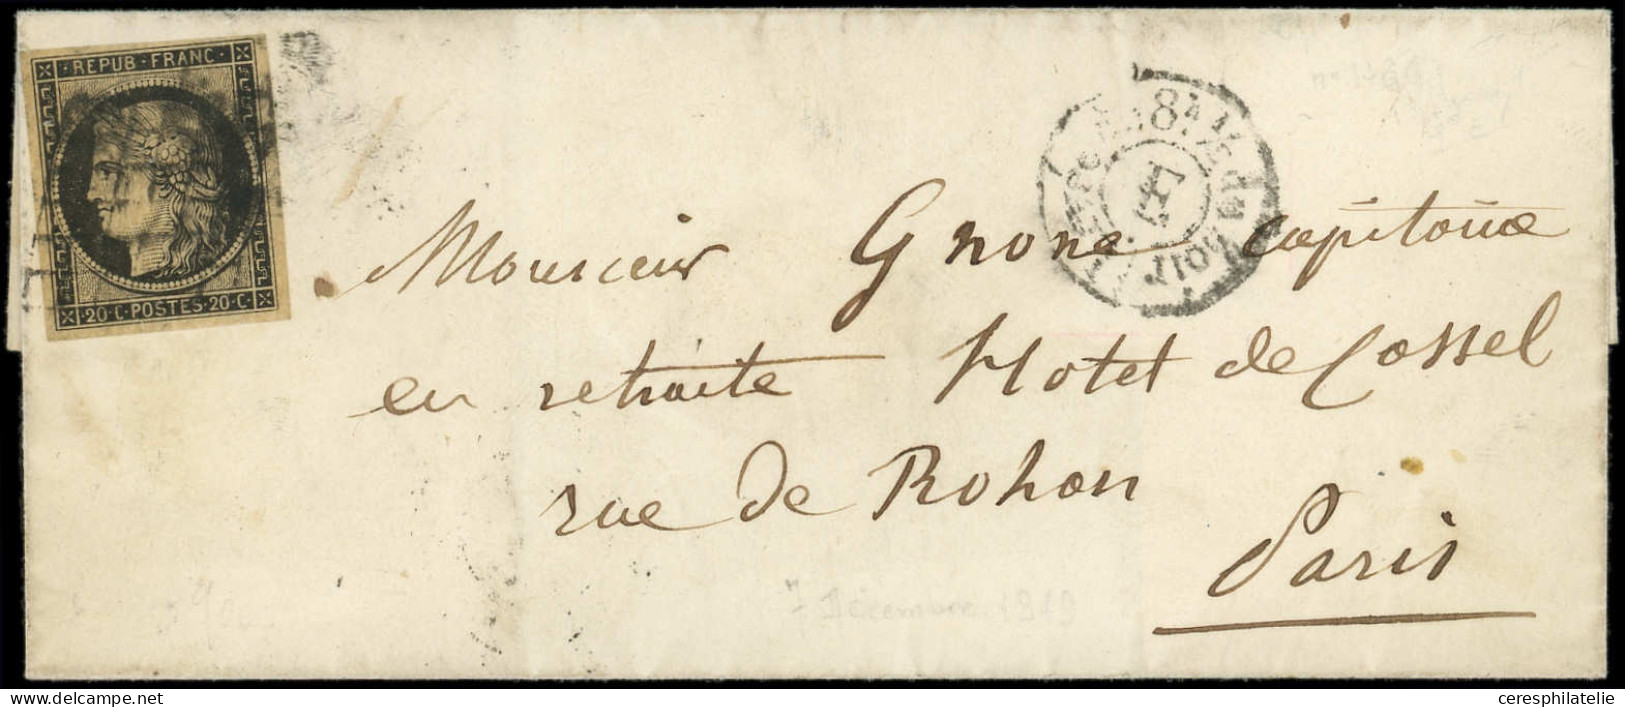 REPUB·FRANC·
20·C·POSTES·20·C·
Monsieur Gnone capitaine
en retraite Hotel de Cassel
rue de Rohan
Paris
7 Décembre 1849
www.delcampe.net
ceresphilatelie